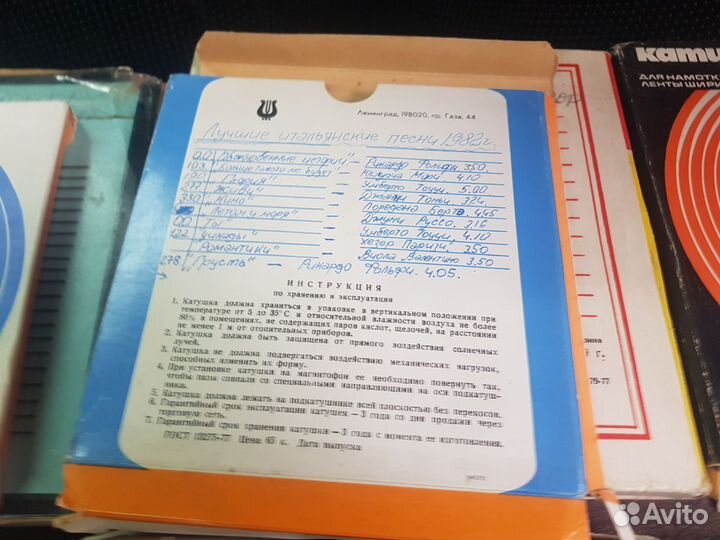 Кати
ДЛЯ НАМОТК
ЛЕНТЫ ШИРИ
Ленинград, 198020, пр. Газа, 44
Лучшие итальянские песни 1982г.
истории" – Рикардо Фольи 3.50
103 не будет" – Мяри 4.10
190 "Глория" – Умберто Тоцци. 5.00
277 "Живи" – Джанни 3.24.
330 "Кино" – Лоредана Берте 4.45
и моря" – Джуни Руссо. 3.16
00 "Ты" – Умберто Тоцци 4.10
122 "Цикады" – Хезер Паризи 3.50
"Романтики" – Виола Валентино 3.50
278 "Грусть" – Рикардо Фольи. 4.05.
ИНСТРУКЦИЯ
по хранению и эксплуатации
1. Катушка должна храниться в упаковке в вертикальном положении при
температуре от 5 до 35°С и относительной влажности воздуха не более
80% в помещениях, не содержащих паров кислот, щелочей, на расстоянии
не менее 1 м от отопительных приборов.
2. Катушка должна быть защищена от прямого воздействия солнечных
лучей.
3. Катушка не должна подвергаться воздействию механических нагрузок,
способных изменить их форму.
4. При установке катушки на магнитофон ее необходимо повернуть так,
чтобы пазы совпали со специальными направляющими на оси подкатуш-
ника.
5. Катушка должна лежать на подкатушнике всей плоскостью без перекосов.
6. Гарантийный срок эксплуатации катушек – 3 года со дня продажи через
торговую сеть.
7. Гарантийный срок хранения катушки – 3 года с момента ее изготовления.
ГОСТ 13275-77 Цена 65 к. Дата выпуска
зина
Г.
79-77
Avito